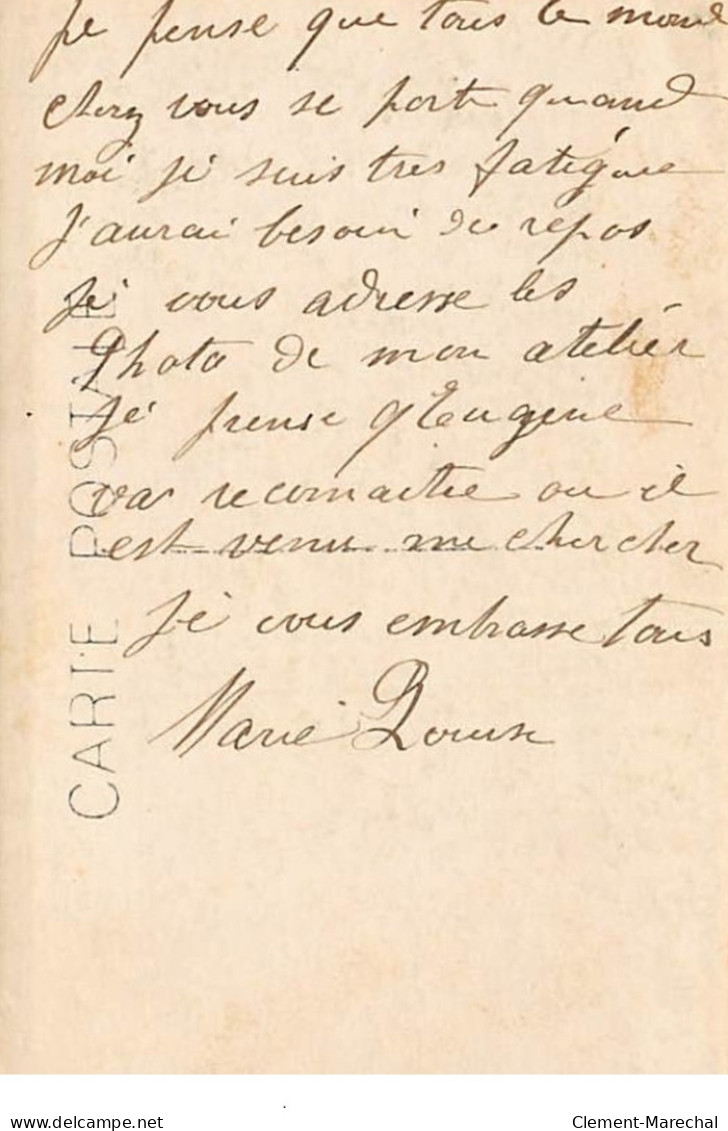 je pense que tous le monde
chez vous se porte quand
moi je suis tres fatigue
j'aurai besoin de repos
je vous adresse les
Photo de mon atelier
je pense q Eugene
va reconaitre ou il
est venu me chercher
je vous embrasse tous
Marie Louise
CARTE POSTALE
delcampe.net
Clement-Marechal